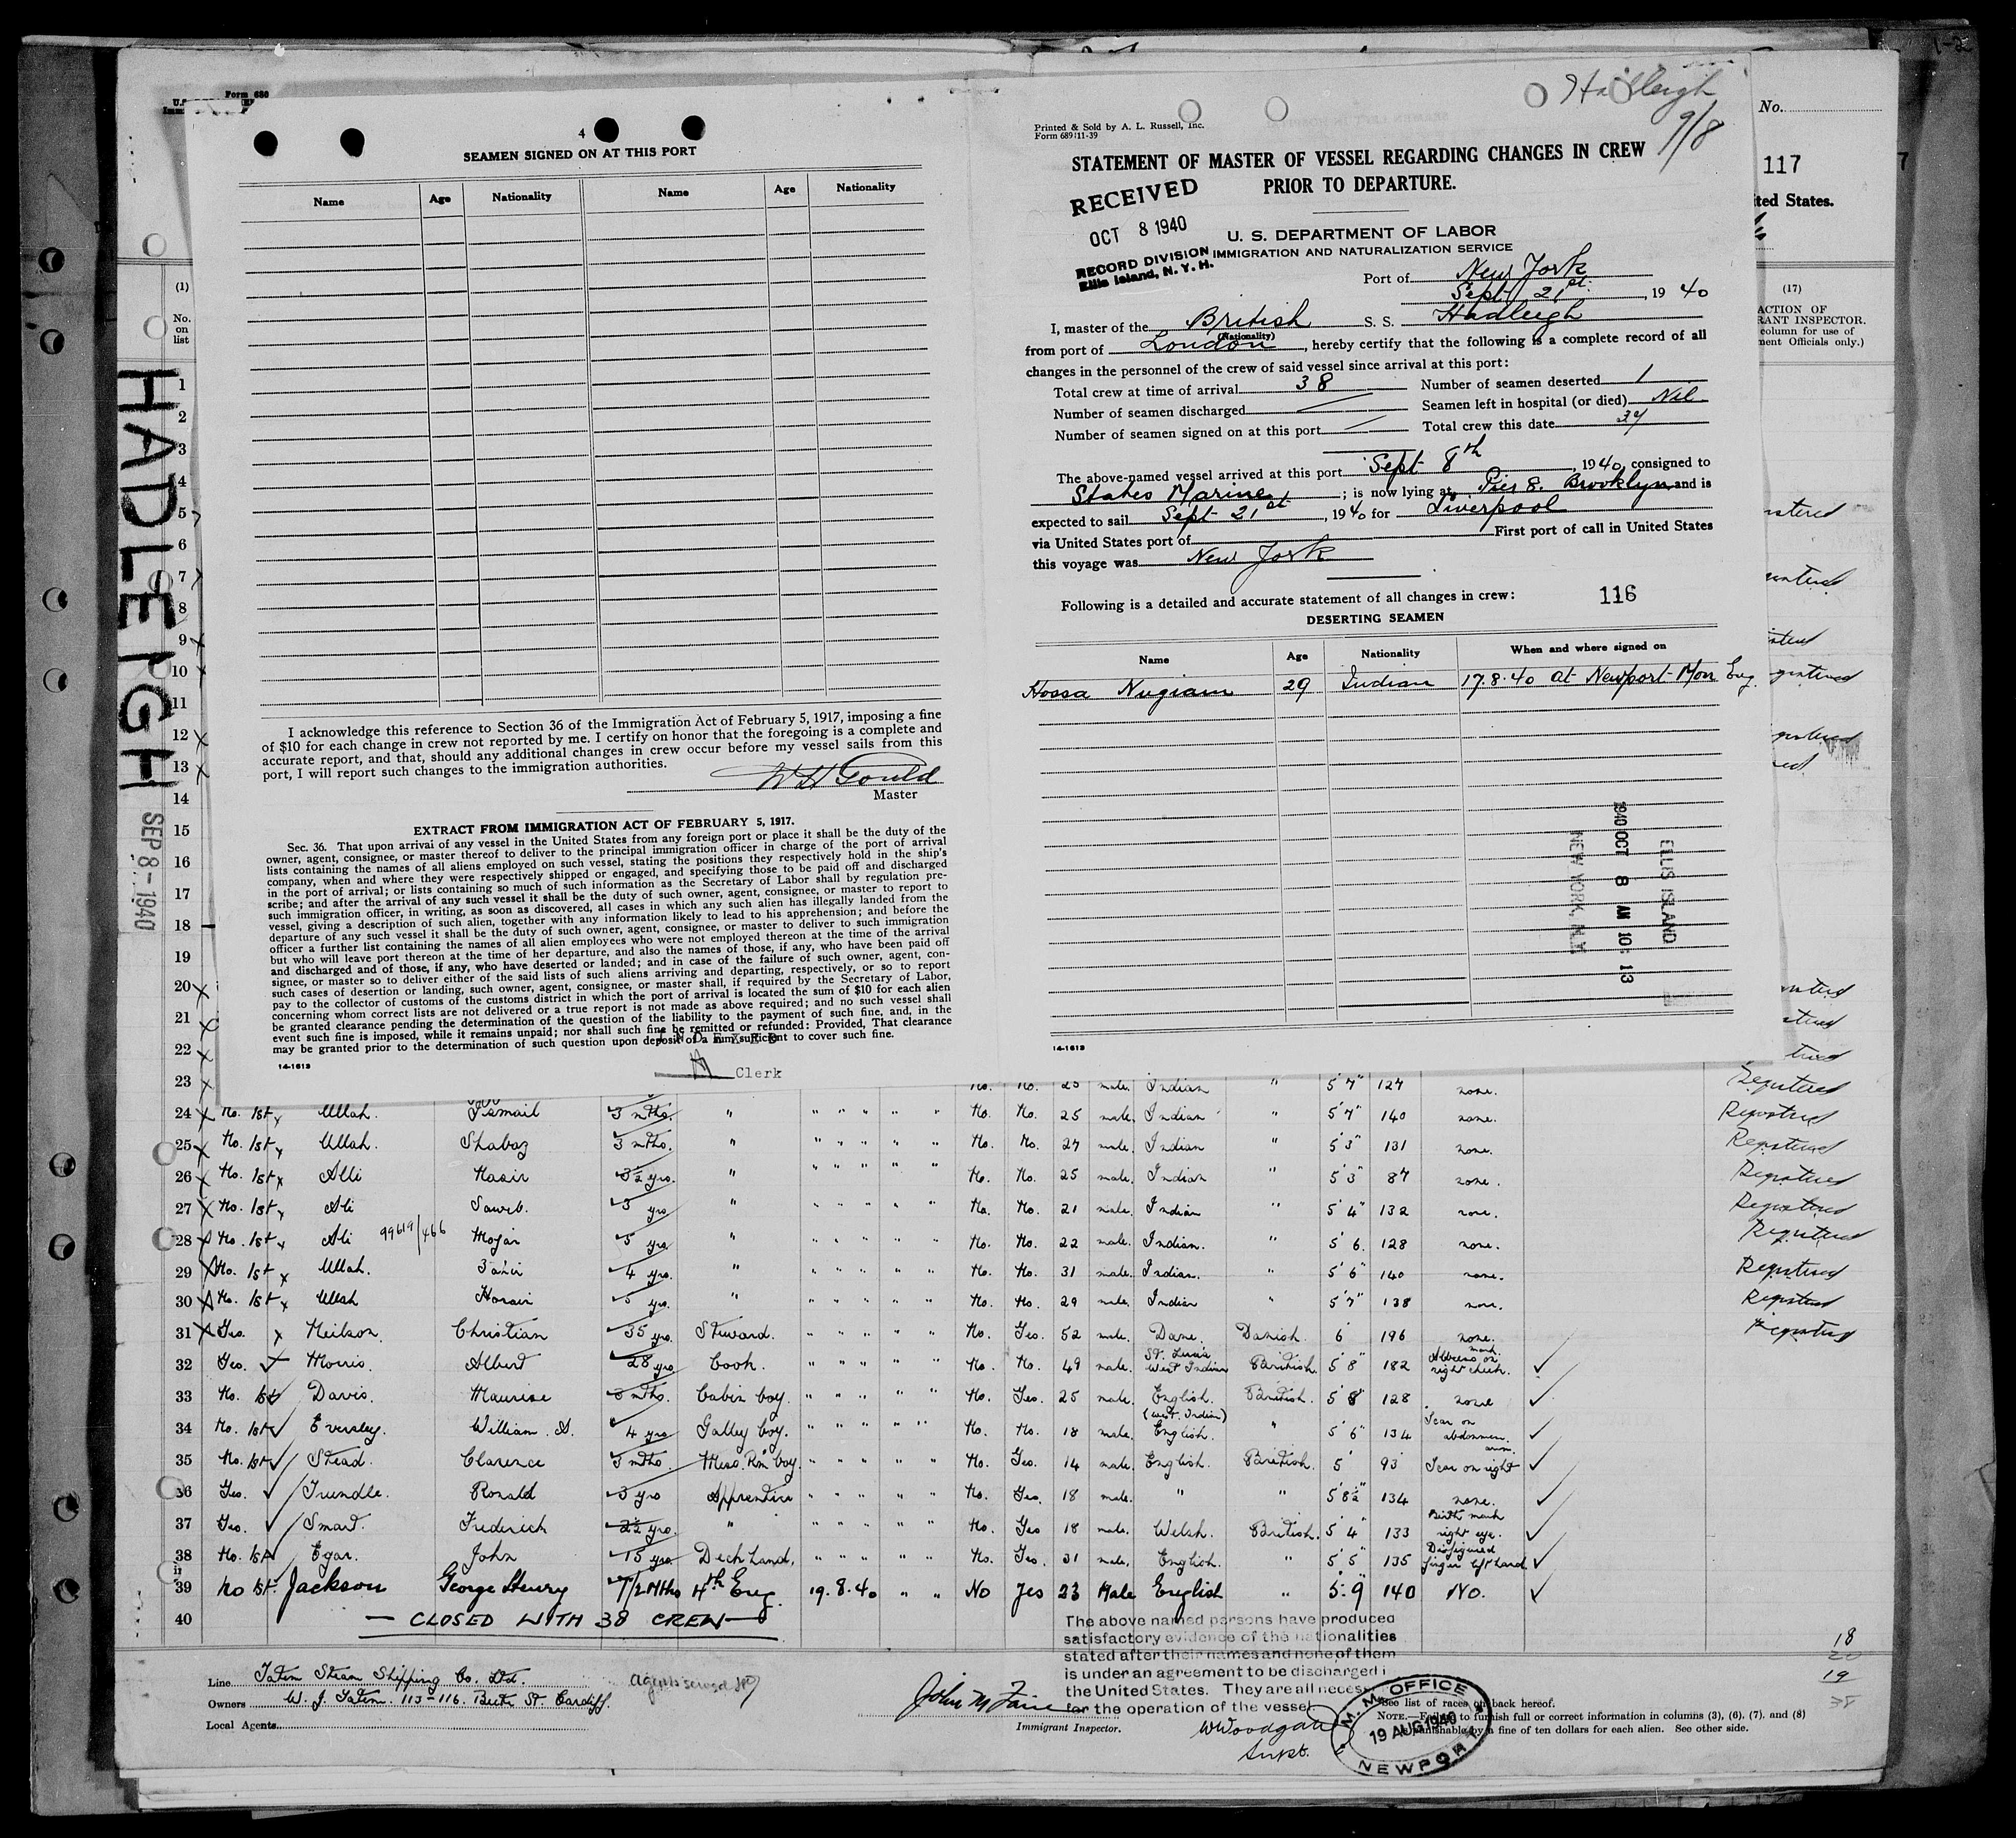 Form 680
4
SEAMEN SIGNED ON AT THIS PORT
Name Age Nationality Name Age Nationality
I acknowledge this reference to Section 36 of the Immigration Act of February 5, 1917, imposing a fine
of $10 for each change in crew not reported by me. I certify on honor that the foregoing is a complete and
accurate report, and that, should any additional changes in crew occur before my vessel sails from this
port, I will report such changes to the immigration authorities.
W H Gould
Master
EXTRACT FROM IMMIGRATION ACT OF FEBRUARY 5, 1917.
Sec. 36. That upon arrival of any vessel in the United States from any foreign port or place it shall be the duty of the
owner, agent, consignee, or master thereof to deliver to the principal immigration officer in charge of the port of arrival
lists containing the names of all aliens employed on such vessel, stating the positions they respectively hold in the ship's
company, when and where they were respectively shipped or engaged, and specifying those to be paid off and discharged
in the port of arrival; or lists containing so much of such information as the Secretary of Labor shall by regulation pre-
scribe; and after the arrival of any such vessel it shall be the duty of such owner, agent, consignee, or master to report to
such immigration officer, in writing, as soon as discovered, all cases in which any such alien has illegally landed from the
vessel, giving a description of such alien, together with any information likely to lead to his apprehension; and before the
departure of any such vessel it shall be the duty of such owner, agent, consignee, or master to deliver to such immigration
officer a further list containing the names of all alien employees who were not employed thereon at the time of the arrival
but who will leave port thereon at the time of her departure, and also the names of those, if any, who have been paid off
and discharged and of those, if any, who have deserted or landed; and in case of the failure of such owner, agent, con-
signee, or master so to deliver either of the said lists of such aliens arriving and departing, respectively, or so to report
such cases of desertion or landing, such owner, agent, consignee, or master shall, if required by the Secretary of Labor,
pay to the collector of customs of the customs district in which the port of arrival is located the sum of $10 for each alien
concerning whom correct lists are not delivered or a true report is not made as above required; and no such vessel shall
be granted clearance pending the determination of the question of the liability to the payment of such fine, and, in the
event such fine is imposed, while it remains unpaid; nor shall such fine be remitted or refunded: Provided, That clearance
may be granted prior to the determination of such question upon deposit of a sum sufficient to cover such fine.
14-1613
INDEXED
Clerk
Hadleigh
9/8
Printed & Sold by A. L. Russell, Inc.
Form 689 11-39
STATEMENT OF MASTER OF VESSEL REGARDING CHANGES IN CREW
PRIOR TO DEPARTURE.
RECEIVED
OCT 8 1940
RECORD DIVISION
Ellis Island, N. Y. H.
U. S. DEPARTMENT OF LABOR
IMMIGRATION AND NATURALIZATION SERVICE
Port of New York
Sept 21st, 1940
I, master of the British S. S. Hadleigh
(Nationality)
from port of London, hereby certify that the following is a complete record of all
changes in the personnel of the crew of said vessel since arrival at this port:
Total crew at time of arrival 38 Number of seamen deserted 1
Number of seamen discharged / Seamen left in hospital (or died) Nil
Number of seamen signed on at this port / Total crew this date 37
The above-named vessel arrived at this port Sept 8th, 1940, consigned to
States Marine; is now lying at Pier 8. Brooklyn and is
expected to sail Sept 21st, 1940 for Liverpool
via United States port of First port of call in United States
this voyage was New York
Following is a detailed and accurate statement of all changes in crew: 116
DESERTING SEAMEN
Name Age Nationality When and where signed on
Hossa Nugiam 29 Indian 17.8.40 at Newport Mon Eng.
ELLIS ISLAND
1940 OCT 8 AM 10 13
NEW YORK, N.Y.
14-1613
No.
117
ited States.
(17)
ACTION OF
RANT INSPECTOR.
column for use of
ment Officials only.)
HADLEIGH
SEP 8 - 1940
(1)
No.
on
list
1
2
3
4
5
6
7
8
9
10
11
12
13
14
15
16
17
18
19
20
21
22
23 No. No. 25 male. Indian " 5'7" 127 none. Registered
24 No. 1st Ullah. Ismail 3 mths. " " " " " " No. No. 25 male. Indian " 5'7" 140 none. Registered
25 No. 1st Ullah. Shabaz 3 mths. " " " " " " No. No. 27 male. Indian " 5'3" 131 none. Registered
26 No. 1st Alli Nasir 3½ yrs. " " " " " " No. No. 25 male. Indian " 5'3" 87 none. Registered
27 No. 1st Ali 5 yrs " " " " " " No. No. 21 male. Indian " 5'4" 132 none. Registered
28 No. 1st Ali 99619/466 5 yrs " " " " " " No. No. 22 male. Indian. " 5'6. 128 none. Registered
29 No. 1st Ullah. 4 yrs. " " " " " " No. No. 31 male. Indian. " 5'6" 140 none. Registered
30 No. 1st Ullah 5 yrs. " " " " " " No. No. 29 male. Indian " 5'7" 138 none. Registered
31 Yes. Neilson. Christian 35 yrs. Steward. " " " " " No. Yes. 52 male. Dane. Danish. 6' 196 none. Registered
32 Yes. Morris. Albert 28 yrs Cook. " " " " " No. No. 49 male. St. Lucia West Indian British. 5'8" 182 Abscess mark on right cheek.
33 No. 1st Davis. Maurice 3 mths. Cabin boy. " " " " " No. Yes. 25 male. English. British. 5'8" 128 none
34 No. 1st Eversley. William. A. 4 yrs Galley boy. " " " " " No. No. 18 male. (West Indian) English. " 5'6" 134 Scar on abdomen.
35 No. 1st Stead. Clarence 3 mths. Mess. Rm boy. " " " " " No. Yes. 14 male. English. British. 5' 93 Scar on right arm.
36 Yes. Trundle. Ronald 3 yrs Apprentice " " " " " No. Yes. 18 male. " " 5'8½" 134 none.
37 Yes. Smart. Frederick 2½ yrs. " " " " " " No. Yes 18 male. Welsh. British. 5'4" 133 Birth mark right eye.
38 No. 1st Egar. John 15 yrs Deck hand. " " " " " No. Yes. 31 male. English. " 5'5" 135 Disfigured finger left hand
39 No 1st. Jackson George Henry 7/12 Mths 4th Eng. 19.8.40 " " No Yes 23 Male English " 5'.9" 140 No.
40 — CLOSED WITH 38 CREW —
The above named persons have produced
satisfactory evidence of the nationalities
stated after their names and none of them
is under an agreement to be discharged i
the United States. They are all neces
for the operation of the vessel.
18
20
19
38
Line Tatem Steam Shipping Co. Ltd.
Owners W. J. Tatem. 113-116. Bute St. Cardiff.
Local Agents
Agents served
Immigrant Inspector.
W Woodgate
Supt.
M. M. OFFICE
19 AUG 1940
NEWPORT
See list of races on back hereof.
NOTE.—Failure to furnish full or correct information in columns (3), (6), (7), and (8)
is punishable by a fine of ten dollars for each alien. See other side.